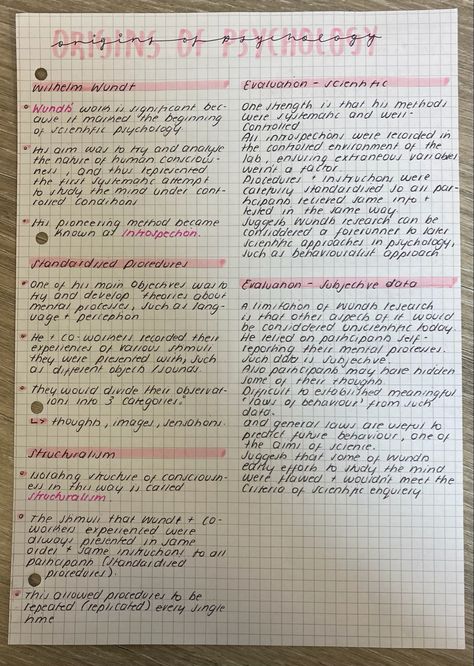 ORIGINS OF PSYCHOLOGY
origins of psychology
Wilhelm Wundt
Wundts work is significant bec-
ause it marked the beginning
of scientific psychology
His aim was to try and analyse
the nature of human conscious-
ness, and thus represented
the first systematic attempt
to study the mind under cont-
rolled conditions
His pioneering method became
known as introspection.
Standardised procedures
One of his main objectives was to
try and develop theories about
mental processes, such as lang-
uage + perception
He + co-workers recorded their
experiences of various stimuli
they were presented with, such
as different objects/sounds.
They would divide their observat-
ions into 3 categories:
↳ thoughts, images, sensations.
Structuralism
Isolating structure of consciousn-
ess in this way is called
structuralism
The stimuli that Wundt + co-
workers experienced were
always presented in same
order + same instructions to all
participants (standardised
procedures).
This allowed procedures to be
repeated (replicated) every single
time
Evaluation - scientific
One strength is that his methods
were systematic and well-
controlled
All introspections were recorded in
the controlled environment of the
lab, ensuring extraneous variables
weren't a factor.
Procedures + instructions were
carefully standardised so all par-
ticipants recieved same info +
tested in the same way
Suggests Wundts research can be
considdered a forerunner to later
scientific approaches in psychology,
such as behaviouralist approach
Evaluation - Subjective data
A limitation of Wundts research
is that other aspects of it would
be considdered unscientific today.
He relied on participants self-
reporting their mental processes.
Such data is subjective.
Also participants may have hidden
some of their thoughts.
Difficult to established meaningful
'laws of behaviour' from such
data.
and general laws are useful to
predict future behaviour, one of
the aims of science.
Suggests that some of Wundts
early efforts to study the mind
were flawed + wouldn't meet the
criteria of scientific enquiery